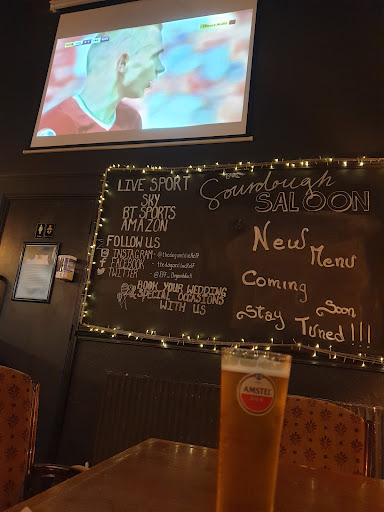 LIVE SPORT
SKY
BT SPORTS
AMAZON
FOLLOW US
INSTAGRAM -
FACEBOOK -
TWITTER -
BOOK YOUR WEDDING
SPECIAL OCCASIONS
WITH US
Sourdough
SALOON
New Menu
Coming
Soon
Stay Tuned!!!
AMSTEL